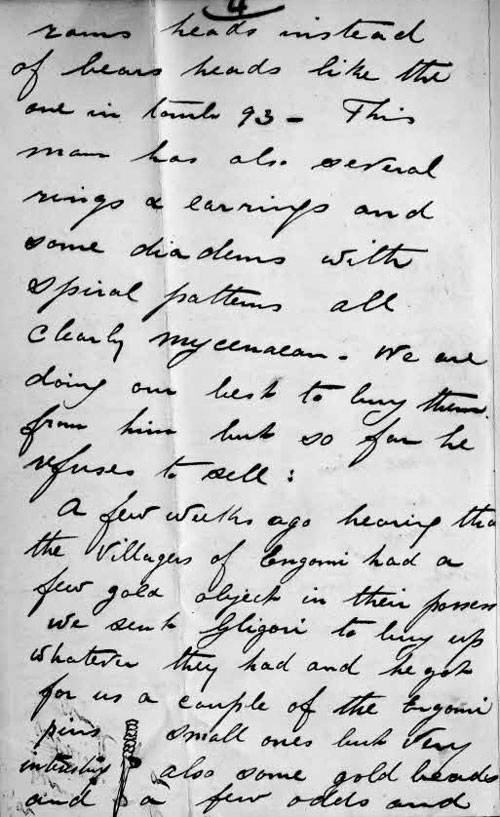 4
rams heads instead
of bears heads like the
one in tomb 93 - This
man has also several
rings & earrings and
some diadems with
spiral patterns all
clearly Mycenaean. We are
doing our best to buy them
from him but so far he
refuses to sell:
A few weeks ago hearing tha
the villagers of Engomi had a
few gold object in their possess
we sent Gligori to buy up
whatever they had and he got
for us a couple of the Engomi
pins small ones but very
interesting also some gold beads
and a few odds and